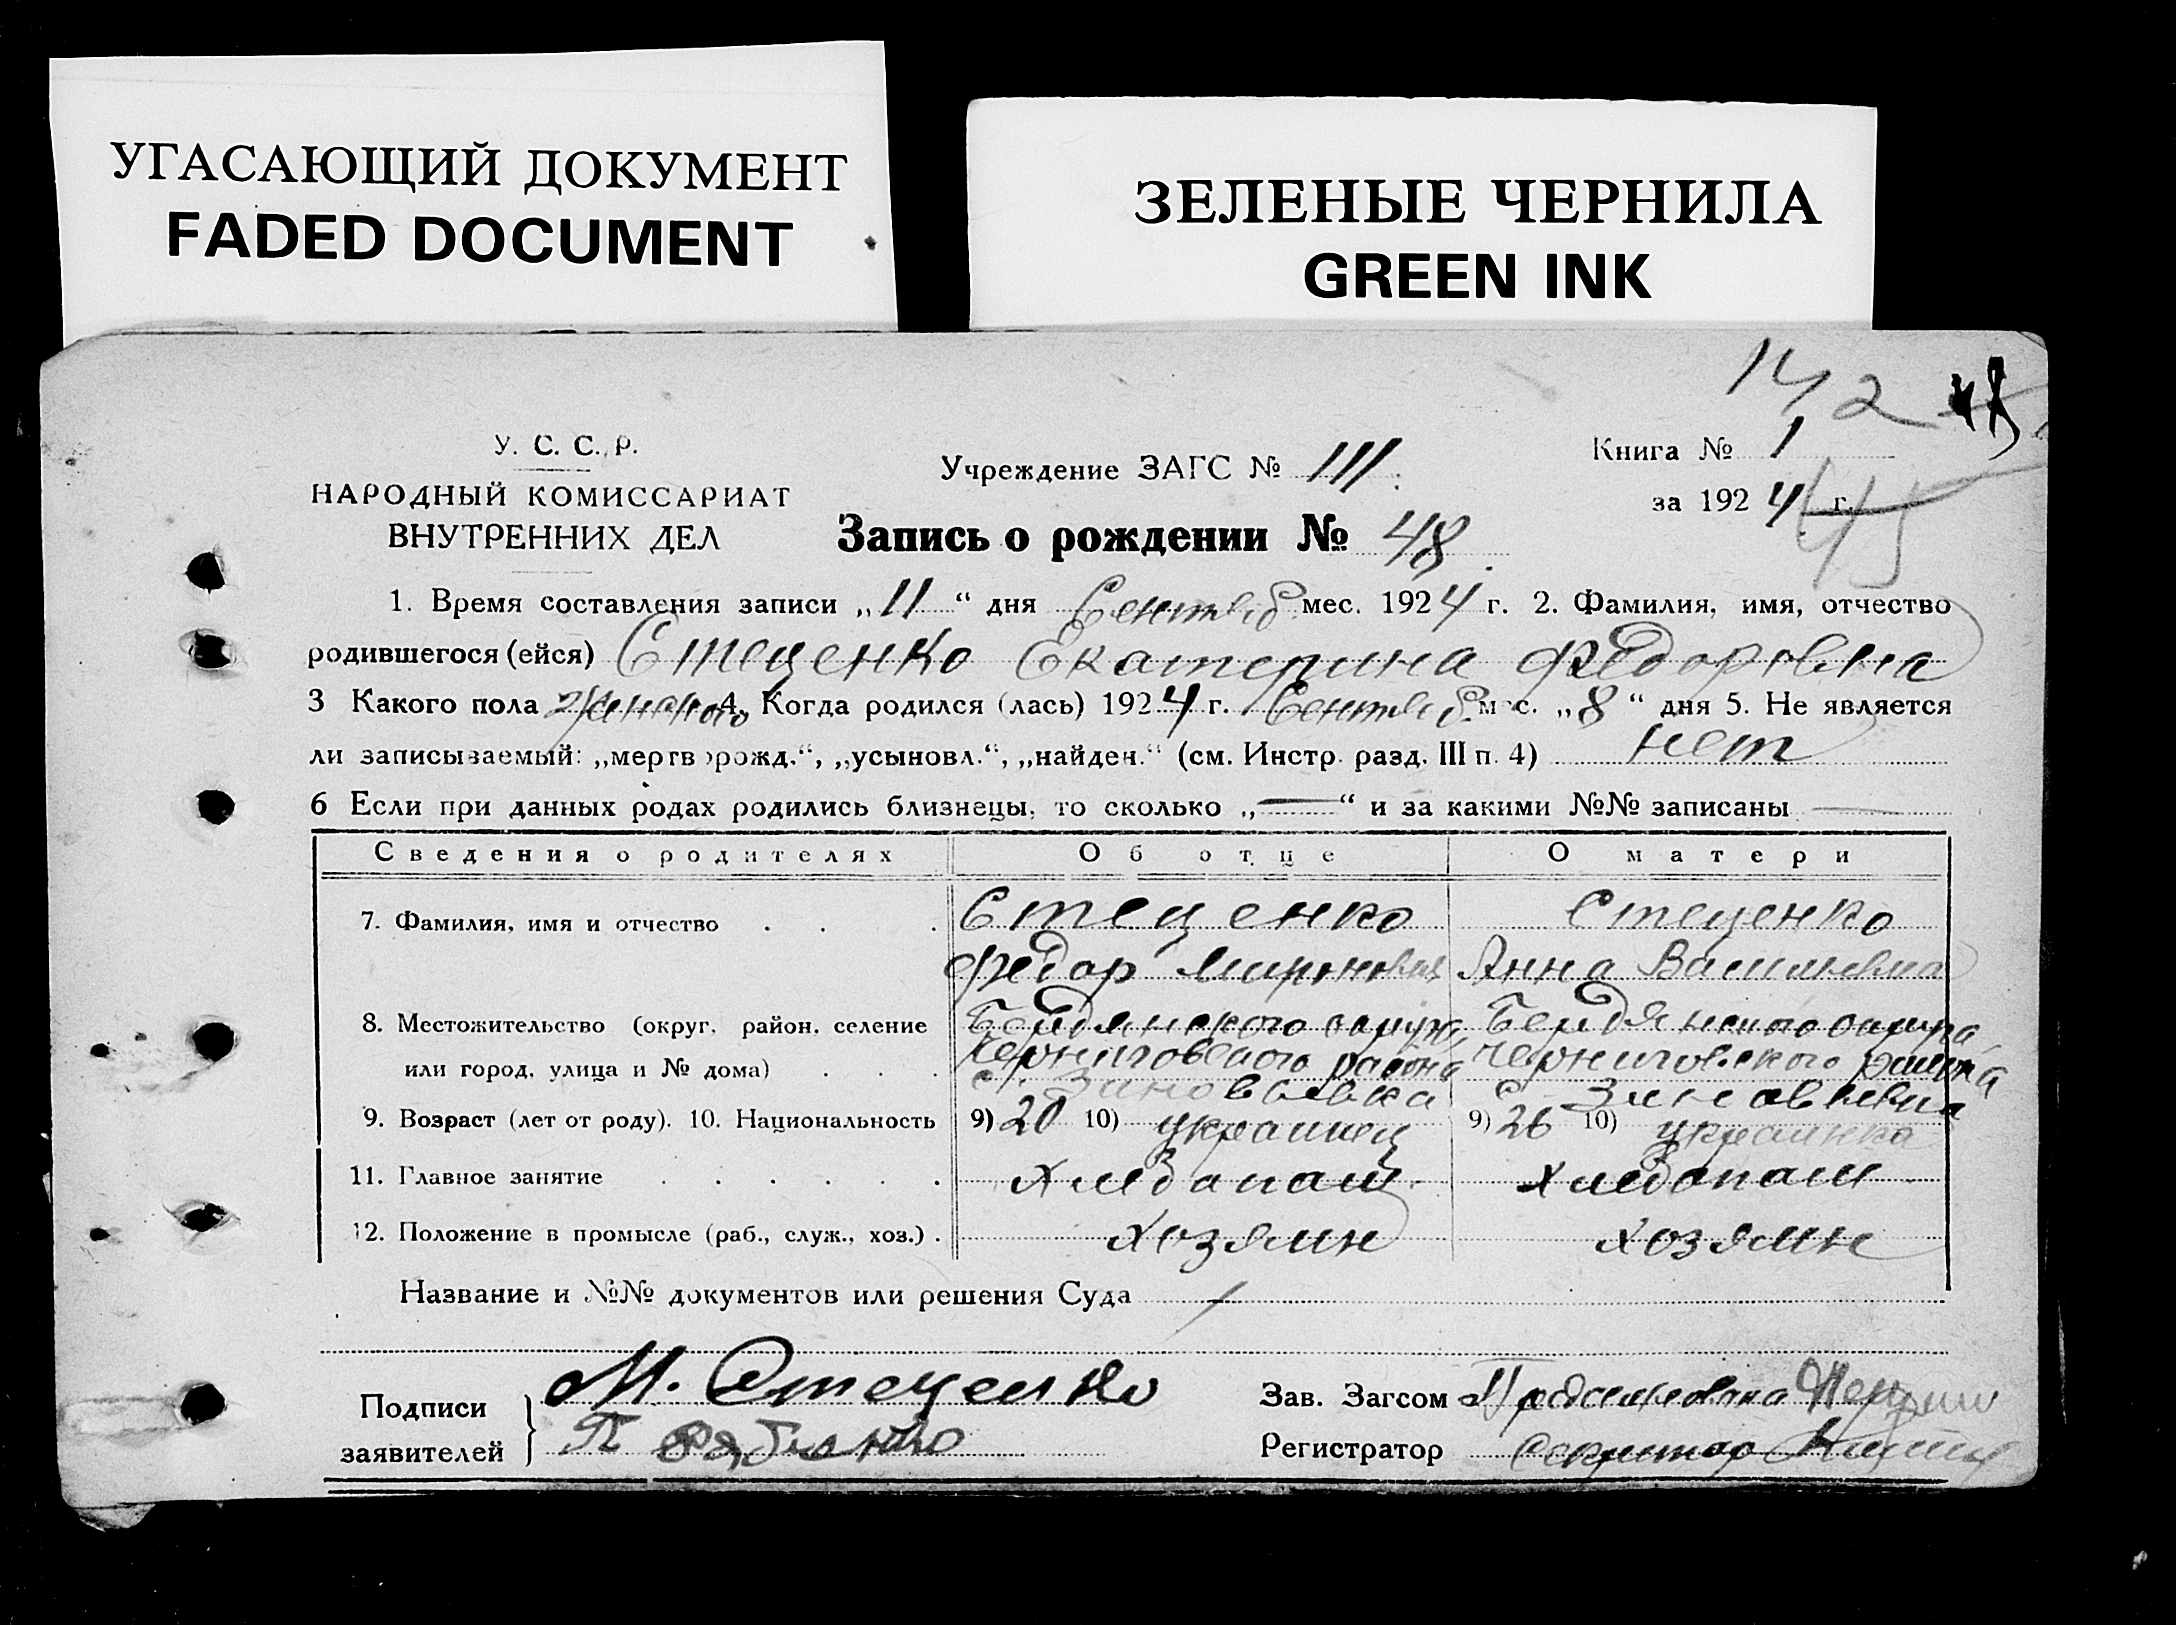 УГАСАЮЩИЙ ДОКУМЕНТ
FADED DOCUMENT
ЗЕЛЕНЫЕ ЧЕРНИЛА
GREEN INK
142 48
У. С. С. Р.
НАРОДНЫЙ КОМИССАРИАТ
ВНУТРЕННИХ ДЕЛ
Учреждение ЗАГС № 111.
Книга № 1
за 1924 г. 45
Запись о рождении № 48
1. Время составления записи „11“ дня Сентяб. мес. 1924 г. 2. Фамилия, имя, отчество
родившегося (ейся) Стеценко Екатерина Федоровна
3 Какого пола женского 4. Когда родился (лась) 1924 г. Сентяб. мес. „8“ дня 5. Не является
ли записываемый: „мертворожд.“, „усыновл.“, „найден.“ (см. Инстр. разд. III п. 4) нет
6 Если при данных родах родились близнецы, то сколько „—“ и за какими №№ записаны —
Сведения о родителях Об отце О матери
7. Фамилия, имя и отчество Стеценко Стеценко
Федор Миронович Анна Васильевна
8. Местожительство (округ, район, селение Бердянского округа, Бердянского округа
или город, улица и № дома) Черниговского района Черниговского района
с. Зиновьевка с. Зиновьевка
9. Возраст (лет от роду). 10. Национальность 9) 20 10) украинец 9) 26 10) украинка
11. Главное занятие Хлебопаш. Хлебопаш
12. Положение в промысле (раб., служ., хоз.) хозяин хозяин
Название и №№ документов или решения Суда
Подписи
заявителей
М. Стеценко
П
Зав. Загсом
Регистратор Секретар